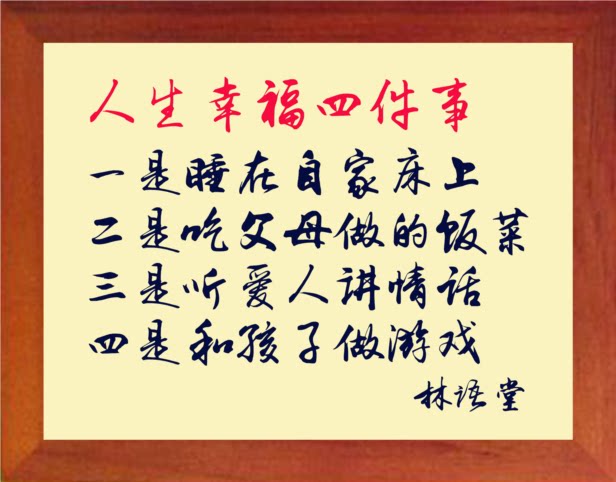 人生幸福四件事
一是睡在自家床上
二是吃父母做的饭菜
三是听爱人讲情话
四是和孩子做游戏
林语堂